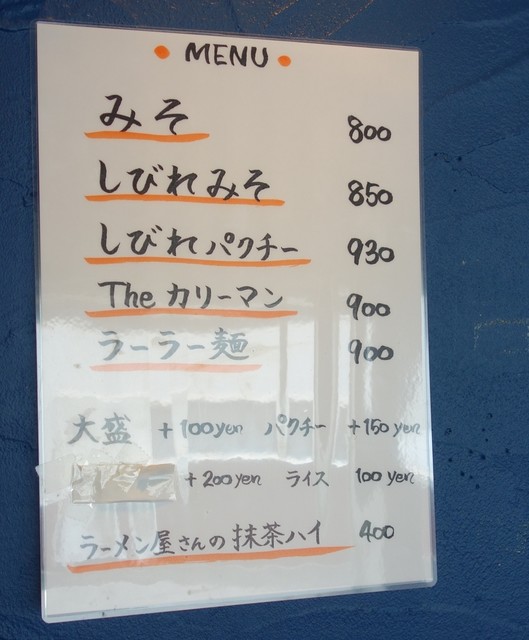 MENU
みそ 800
しびれみそ 850
しびれパクチー 930
The カリーマン 900
ラーラー麺 900
大盛 +100yen パクチー +150yen
+200yen ライス 100yen
ラーメン屋さんの抹茶ハイ 400